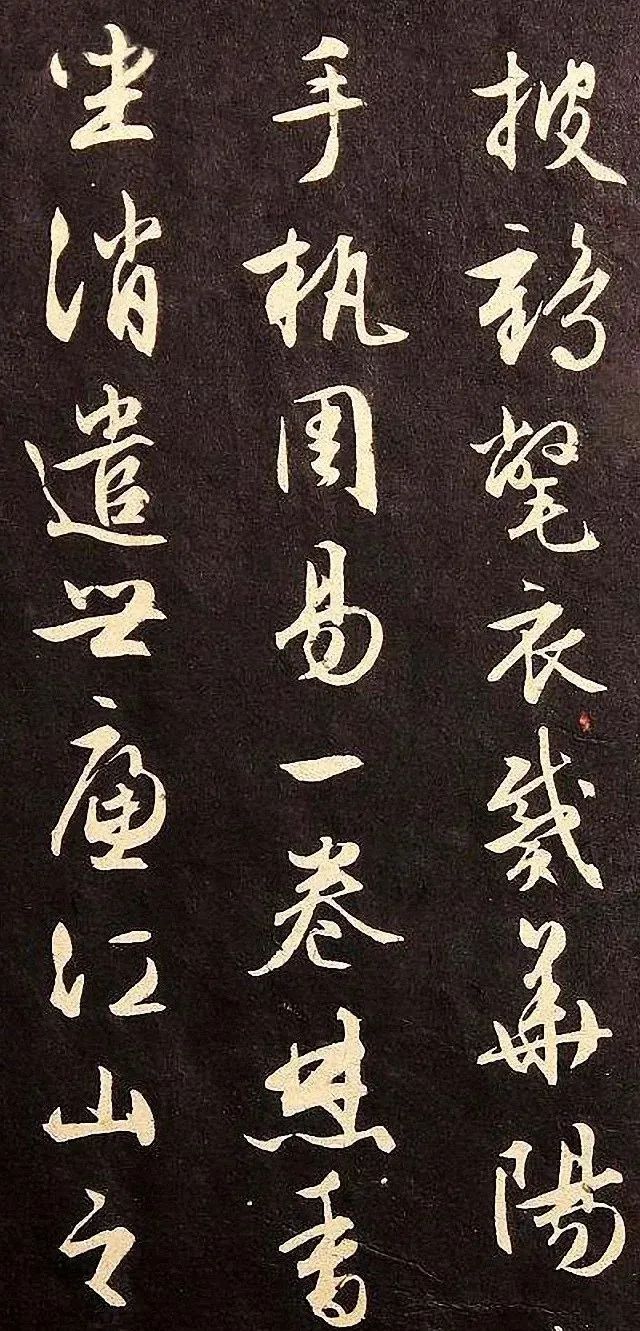 披鶴氅衣戴華陽
手執周易一卷焚香
坐消遣世慮江山之